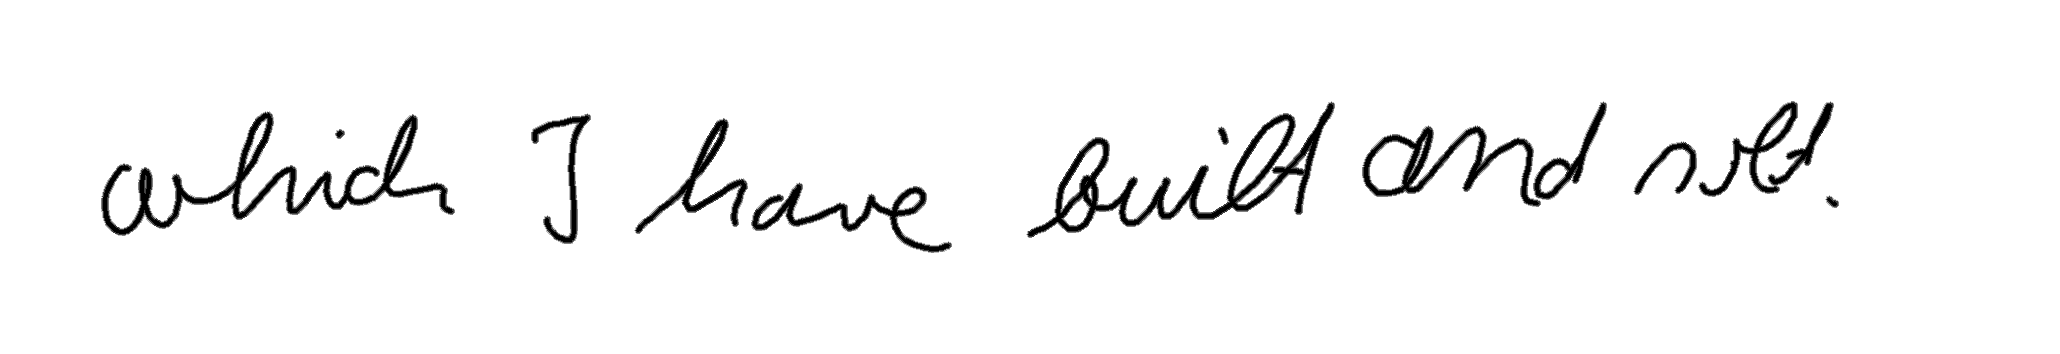 which I have built and sold.